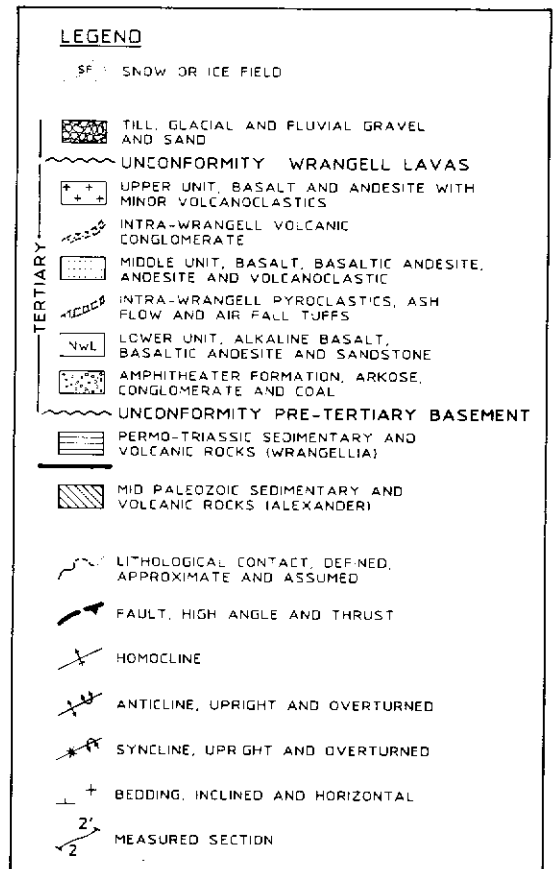 LEGEND
SF SNOW OR ICE FIELD
TILL, GLACIAL AND FLUVIAL GRAVEL
AND SAND
UNCONFORMITY WRANGELL LAVAS
UPPER UNIT, BASALT AND ANDESITE WITH
MINOR VOLCANOCLASTICS
INTRA-WRANGELL VOLCANIC
CONGLOMERATE
MIDDLE UNIT, BASALT, BASALTIC ANDESITE,
ANDESITE AND VOLCANOCLASTIC
INTRA-WRANGELL PYROCLASTICS, ASH
FLOW AND AIR FALL TUFFS
NwL LOWER UNIT, ALKALINE BASALT,
BASALTIC ANDESITE AND SANDSTONE
AMPHITHEATER FORMATION, ARKOSE,
CONGLOMERATE AND COAL
TERTIARY
UNCONFORMITY PRE-TERTIARY BASEMENT
PERMO-TRIASSIC SEDIMENTARY AND
VOLCANIC ROCKS (WRANGELLIA)
MID PALEOZOIC SEDIMENTARY AND
VOLCANIC ROCKS (ALEXANDER)
LITHOLOGICAL CONTACT, DEFINED,
APPROXIMATE AND ASSUMED
FAULT, HIGH ANGLE AND THRUST
HOMOCLINE
ANTICLINE, UPRIGHT AND OVERTURNED
SYNCLINE, UPRIGHT AND OVERTURNED
BEDDING, INCLINED AND HORIZONTAL
2 2' MEASURED SECTION